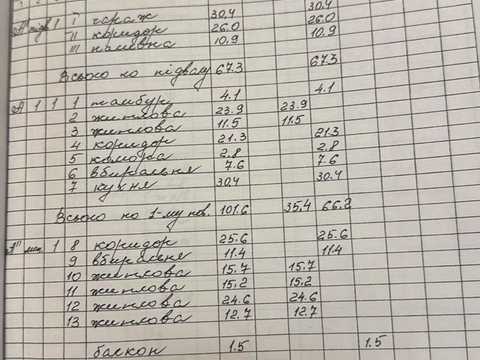 I гараж 30.4 30.4
А підв 1 II коридор 26.0 26.0
III комівна 10.9 10.9
Всього по підвалу 67.3 67.3
А 1 1 1 тамбур 4.1 4.1
2 житлова 23.9 23.9
3 житлова 11.5 11.5
4 коридор 21.3 21.3
5 комора 2.8 2.8
6 вбиральня 7.6 7.6
7 кухня 30.4 30.4
Всього по 1-му пов. 101.6 35.4 66.2
1 8 коридор 25.6 25.6
9 вбиральня 11.4 11.4
10 житлова 15.7 15.7
11 житлова 15.2 15.2
12 житлова 24.6 24.6
13 житлова 12.7 12.7
балкон 1.5 1.5